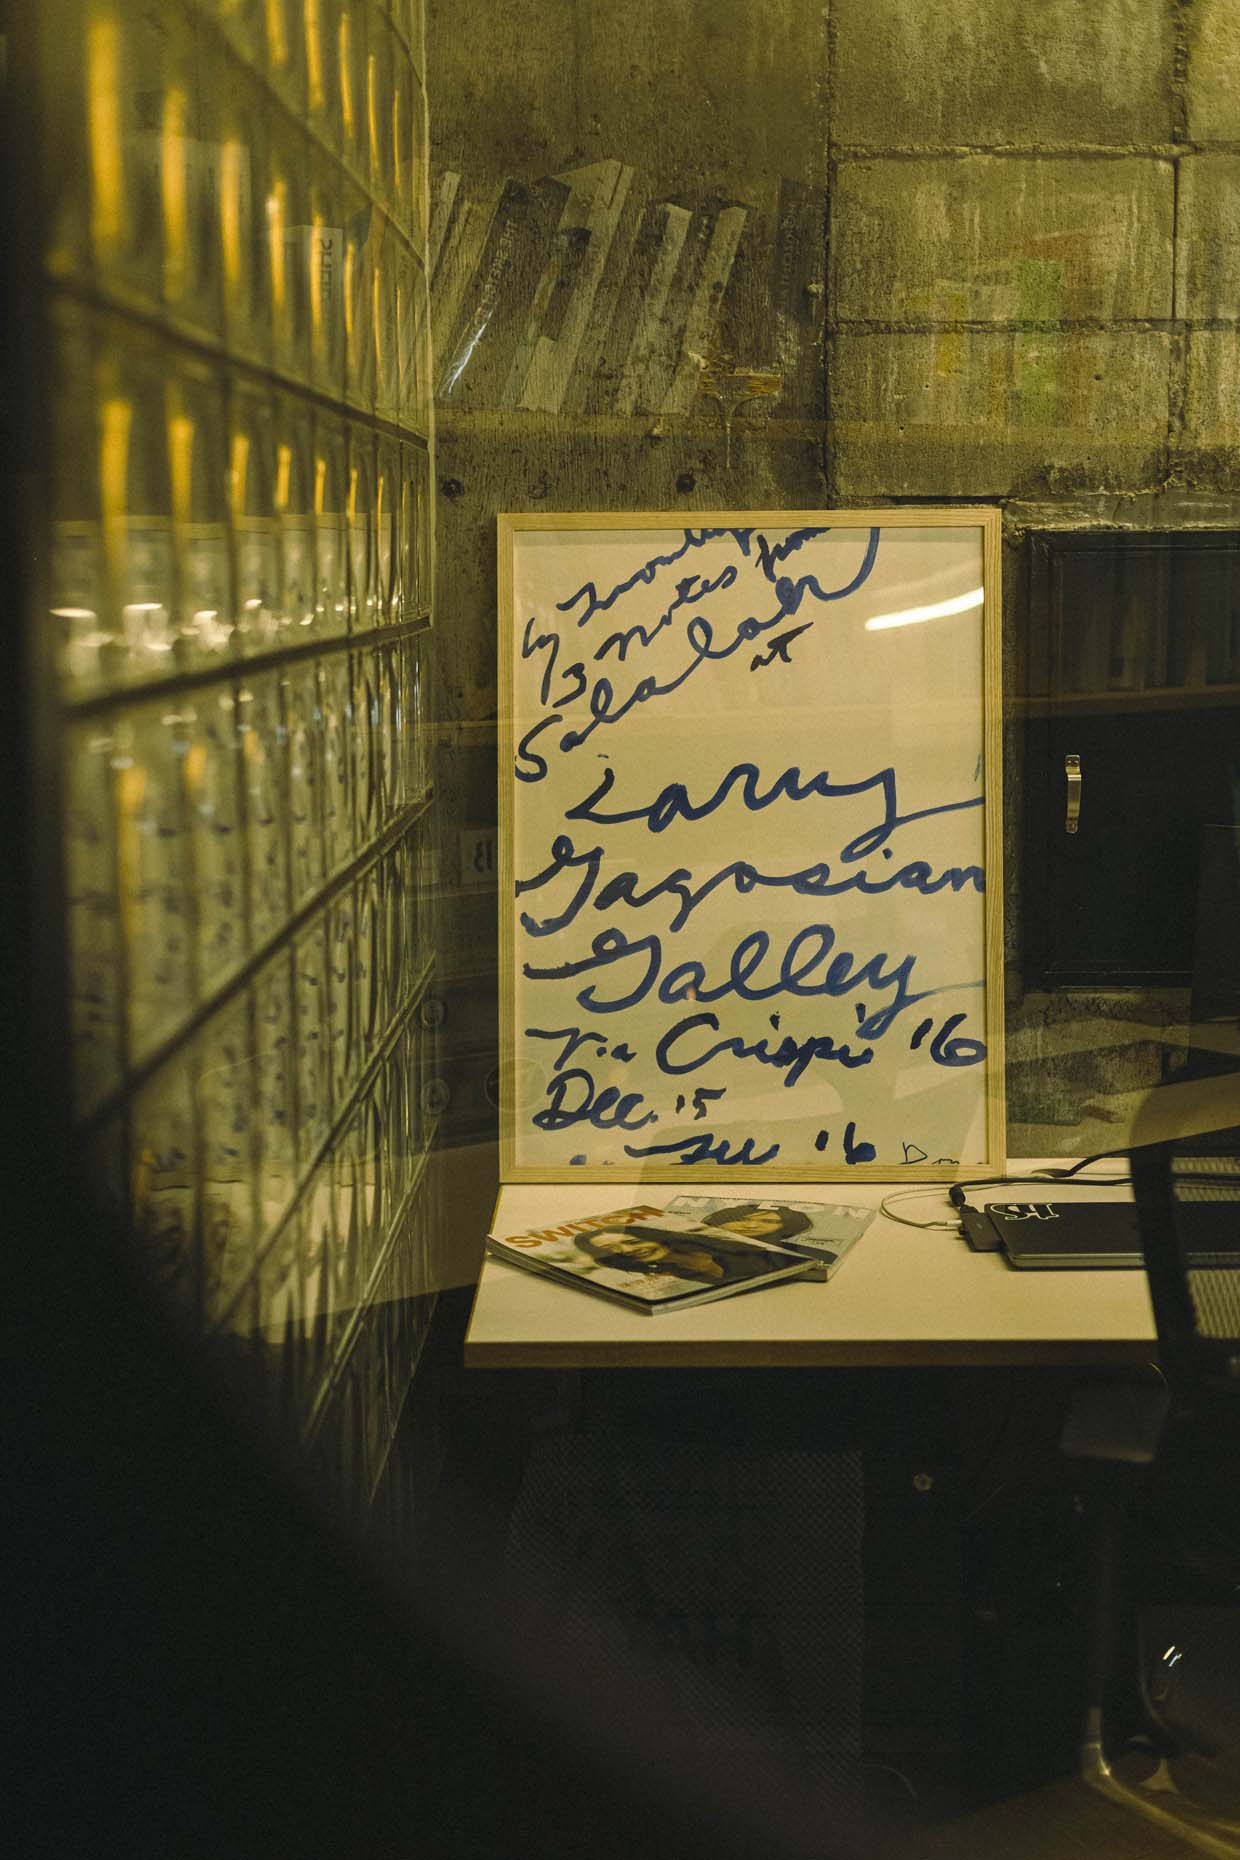 by Twombly
13 notes from
Salalah
at
Larry
Gagosian
Galley
Via Crispi '16
Dec. 15
'16
SWITCH
NYLON
S4